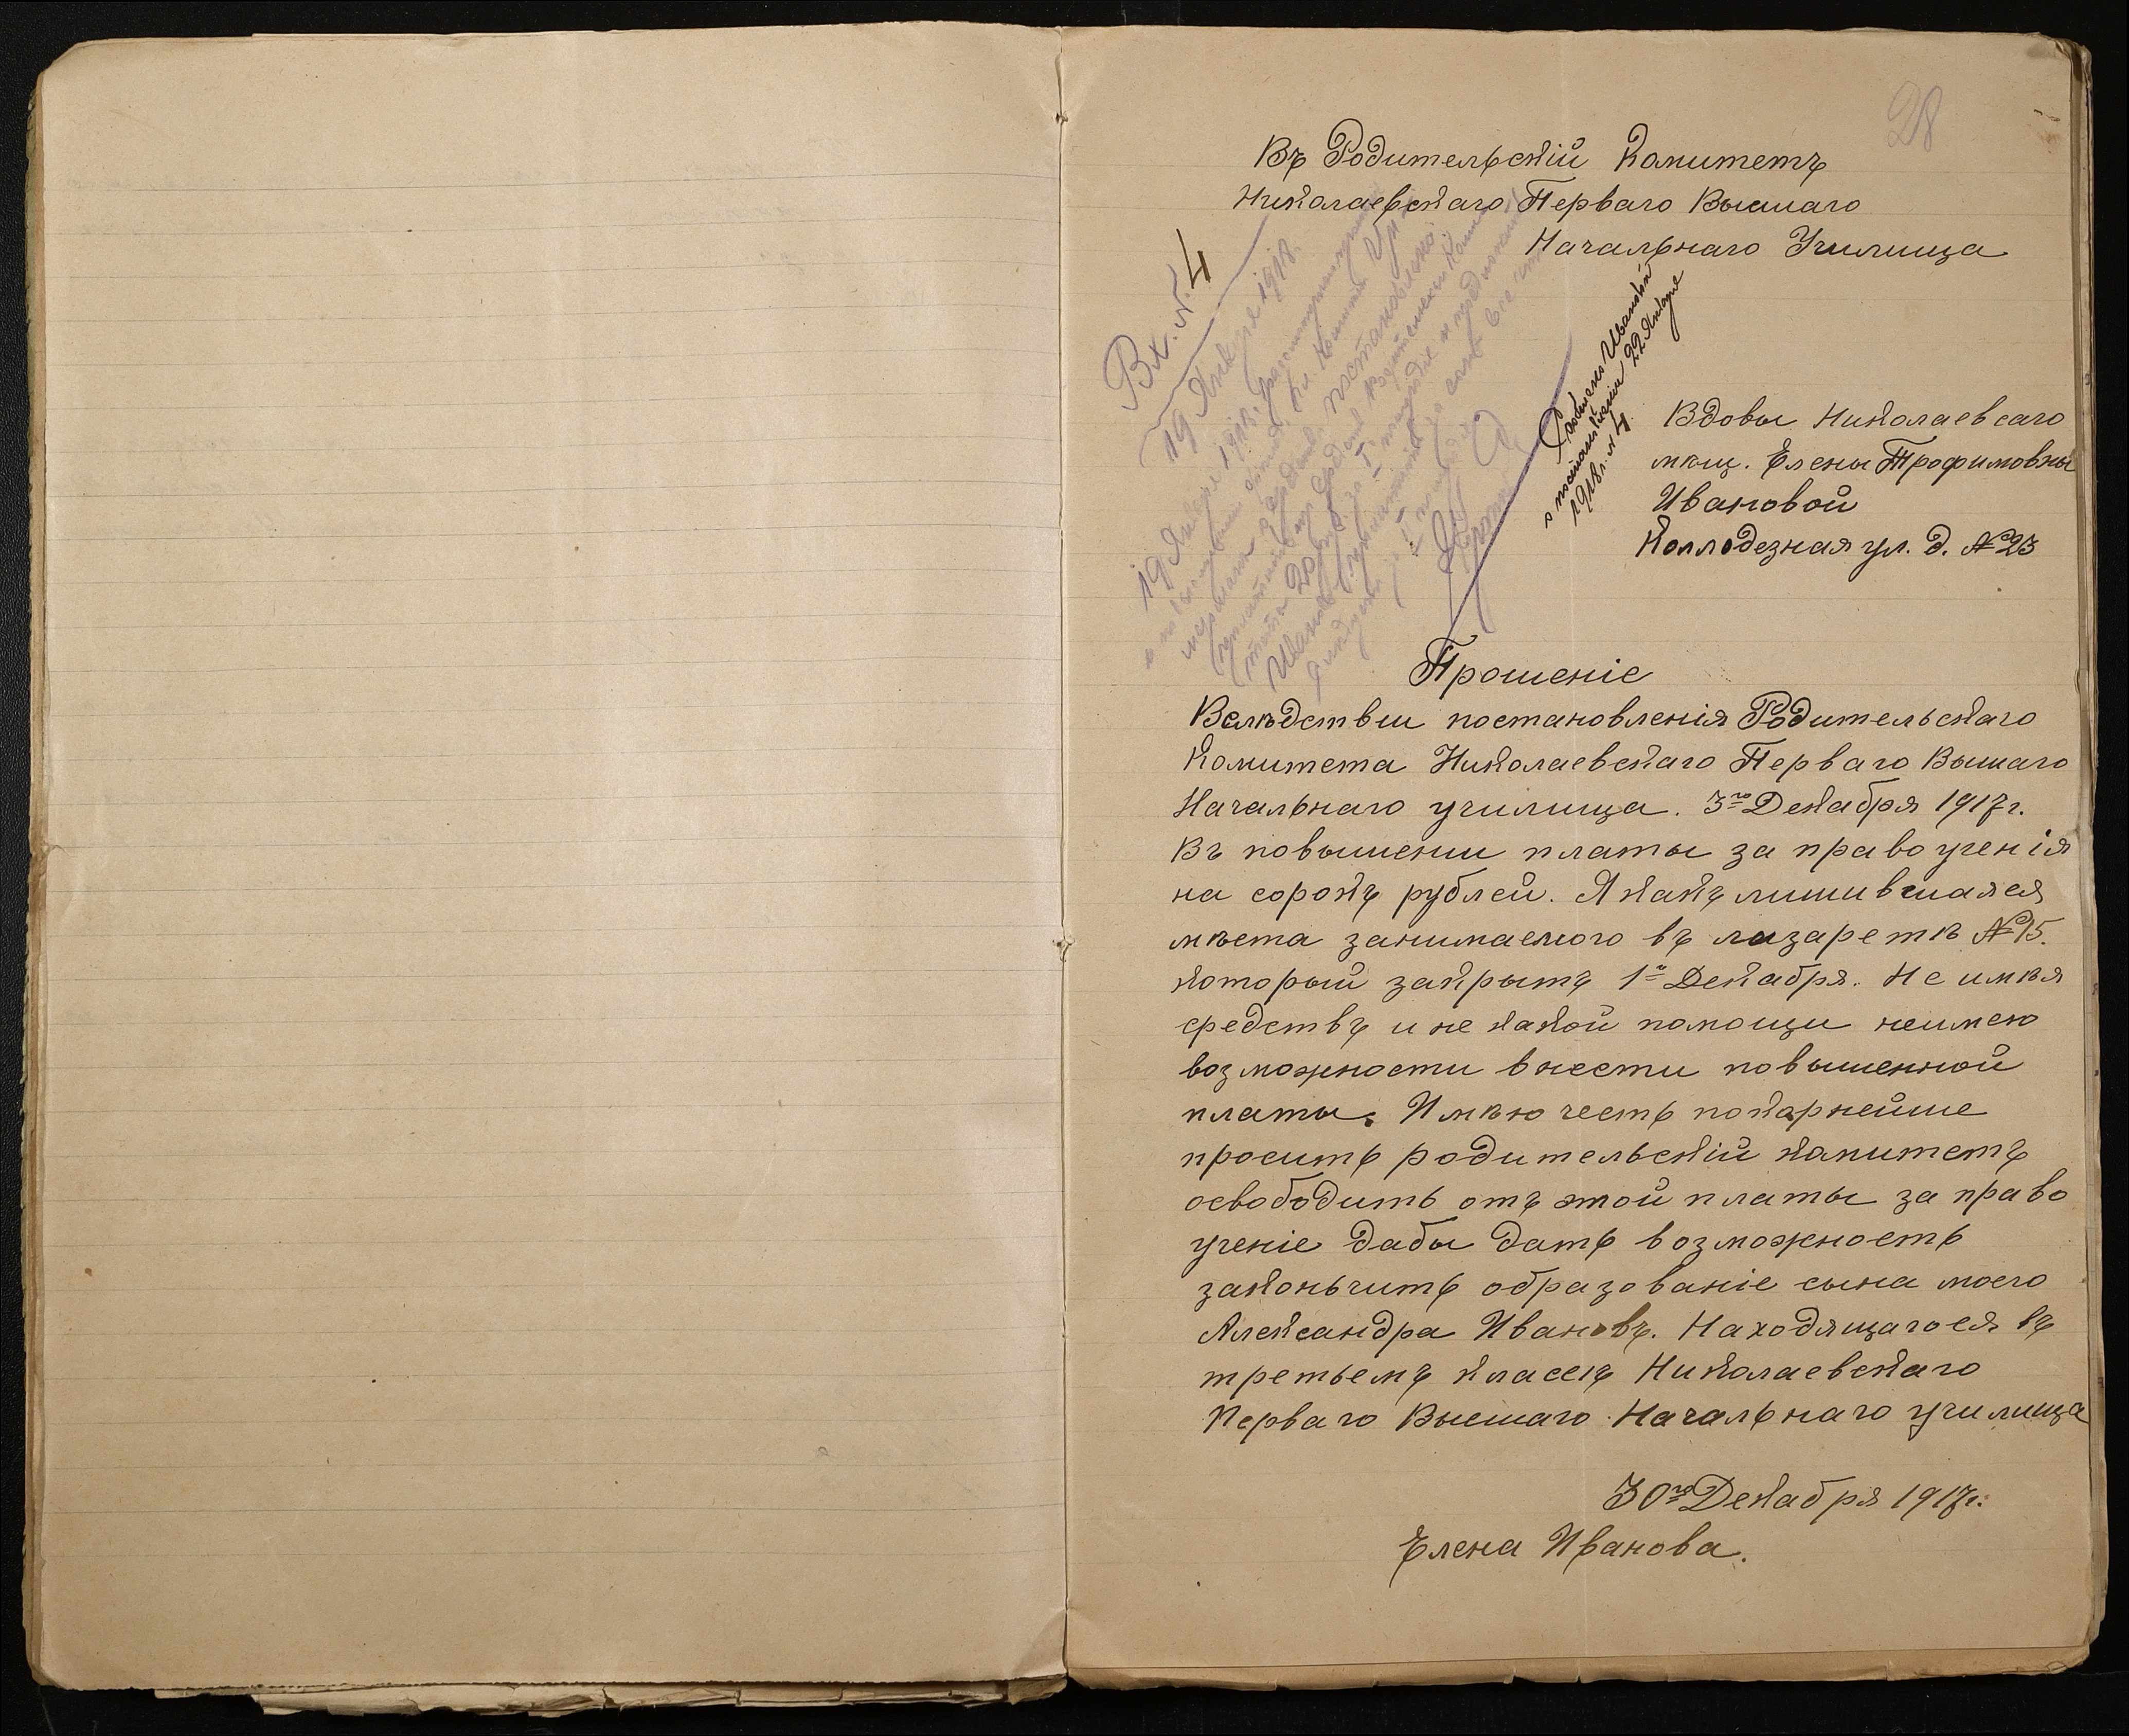 28
Въ Родительскій Комитетъ
Николаевскаго Перваго Высшаго
Начальнаго Училища
Вх. № 4
19 Января 1918
19 Января 1918
Сообщено Ивановой
о постановленіи 22 Января
1918 г. № 4.
Вдовы Николаевсаго
мѣщ. Елены Трофимовны
Ивановой
Коллодезная ул. д. № 23
Прошеніе
Вслѣдствии постановленія Родительскаго
Комитета Николаевскаго Перваго Вышаго
Начальнаго училища. 3го Декабря 1917 г.
въ повышении платы за право ученія
на сорокъ рублей. Я какъ лишившаяся
мѣста занимаемого въ лазаретѣ № 15.
который закрытъ 1го Декабря. Не имѣя
средствъ и не какой помощи неимею
возможности внести повышенной
платы. Имѣю честь покарнейше
просить родительскій камитетъ
освободить отъ этой платы за право
ученіе дабы дать возможность
законьчить образованіе сына моего
Александра Ивановъ. Находящагося въ
третьемъ классѣ Николаевскаго
Перваго Высшаго Начальнаго училища
30го Декабря 1917 г.
Елена Иванова.